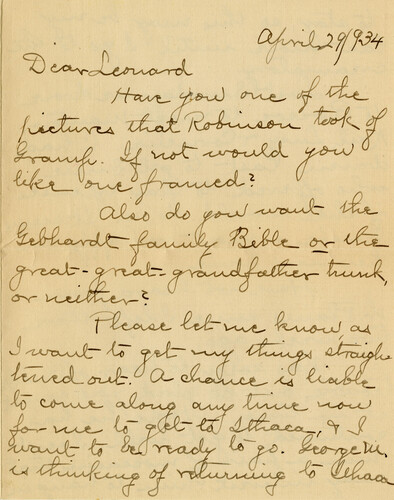 April 29/934
Dear Leonard
Have you one of the
pictures that Robinson took of
Gramp. If not would you
like one framed?
Also do you want the
Gebhardt family Bible or the
great-great-grandfather trunk,
or neither?
Please let me know, as
I want to get my things straigh
tened out. A chance is liable
to come along any time now
for me to get to Ithaca, & I
want to be ready to go. George M.
is thinking of returning to Ithaca